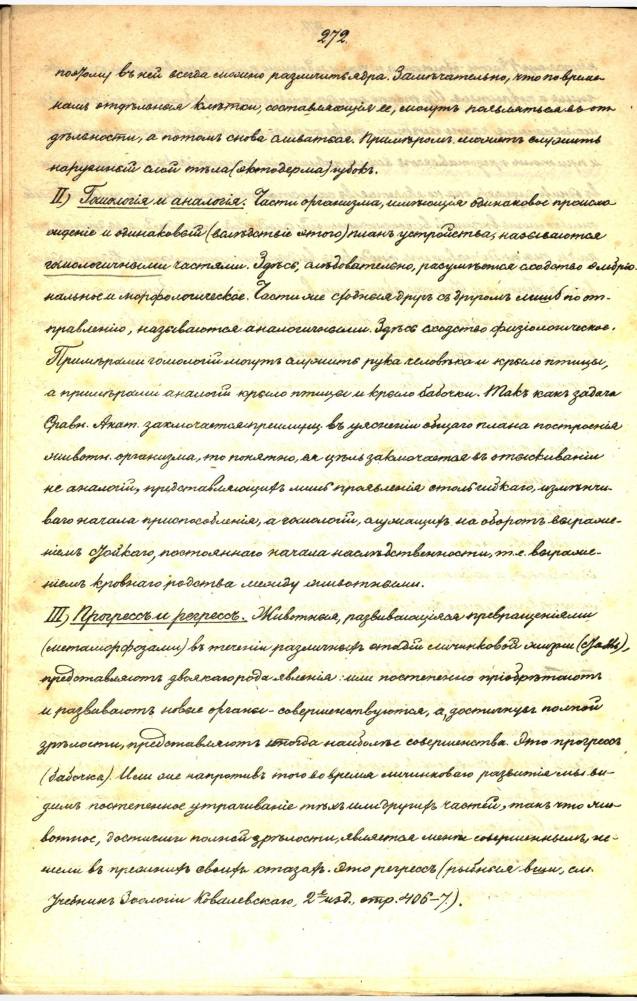 272.
поэтому въ ней всегда можно различить ядра. Замѣчательно, что по време-
намъ отдѣльныя клѣтки, составляющія ее, могутъ появляться въ от-
дѣльности, а потомъ снова сливаться. Примѣромъ можетъ служить
наружный слой тѣла (эктодерма) губокъ.
II) Гомологія и аналогія. Части организма, имѣющія одинаковое происхо-
жденіе и одинаковый (вслѣдствіе этого) планъ устройства, называются
гомологичными частями. Здѣсь, слѣдовательно, разумѣется сходство эмбріо-
нальное и морфологическое. Части же сходныя другъ съ другомъ лишь по от-
правленію, называются аналогичными. Здѣсь сходство физіологическое.
Примѣрами гомологій могутъ служить рука человѣка и крыло птицы,
а примѣрами аналогій крыло птицы и крыло бабочки. Такъ какъ задача
Сравн. Анат. заключается преимущ. въ уясненіи общаго плана построенія
животн. организма, то понятно, ея цѣль заключается въ отыскиваніи
не аналогій, представляющихъ лишь проявленія столь гибкаго, измѣнчи-
ваго начала приспособленія, а гомологій, служащихъ на оборотъ выраже-
ніемъ стойкаго, постояннаго начала наслѣдственности, т.е. выраже-
ніемъ кровнаго родства между животными.
III) Прогрессъ и регрессъ. Животныя, развивающіяся превращеніями
(метаморфозами) въ теченіи различныхъ стадій личинковой жизни
представляютъ двоякаго рода явленія: или постепенно пріобрѣтаютъ
и развиваютъ новые органы - совершенствуются, а, достигнувъ полной
зрѣлости, представляютъ тогда наиболѣе совершенства. Это прогрессъ
(бабочка). Или же напротивъ того во время личинковаго развитія мы ви-
димъ постепенное утрачиваніе тѣхъ или другихъ частей, такъ что жи-
вотное, достигши полной зрѣлости, является менѣе совершеннымъ, не-
жели въ прежнихъ своихъ стадіяхъ. Это регрессъ (рыбныя вши, см.
Учебникъ Зоологіи Ковалевскаго, 2е изд., стр. 406-7.).